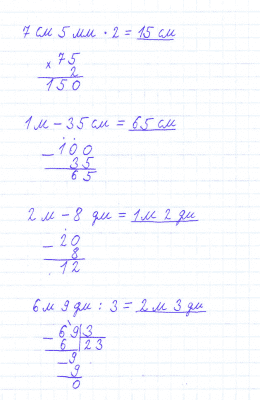 7 см 5 мм · 2 = 15 см
× 75
2
150
1 м − 35 см = 65 см
− 100
35
65
2 м − 8 дм = 1 м 2 дм
− 20
8
12
6 м 9 дм : 3 = 2 м 3 дм
− 69 | 3
6 | 23
− 9
− 9
0